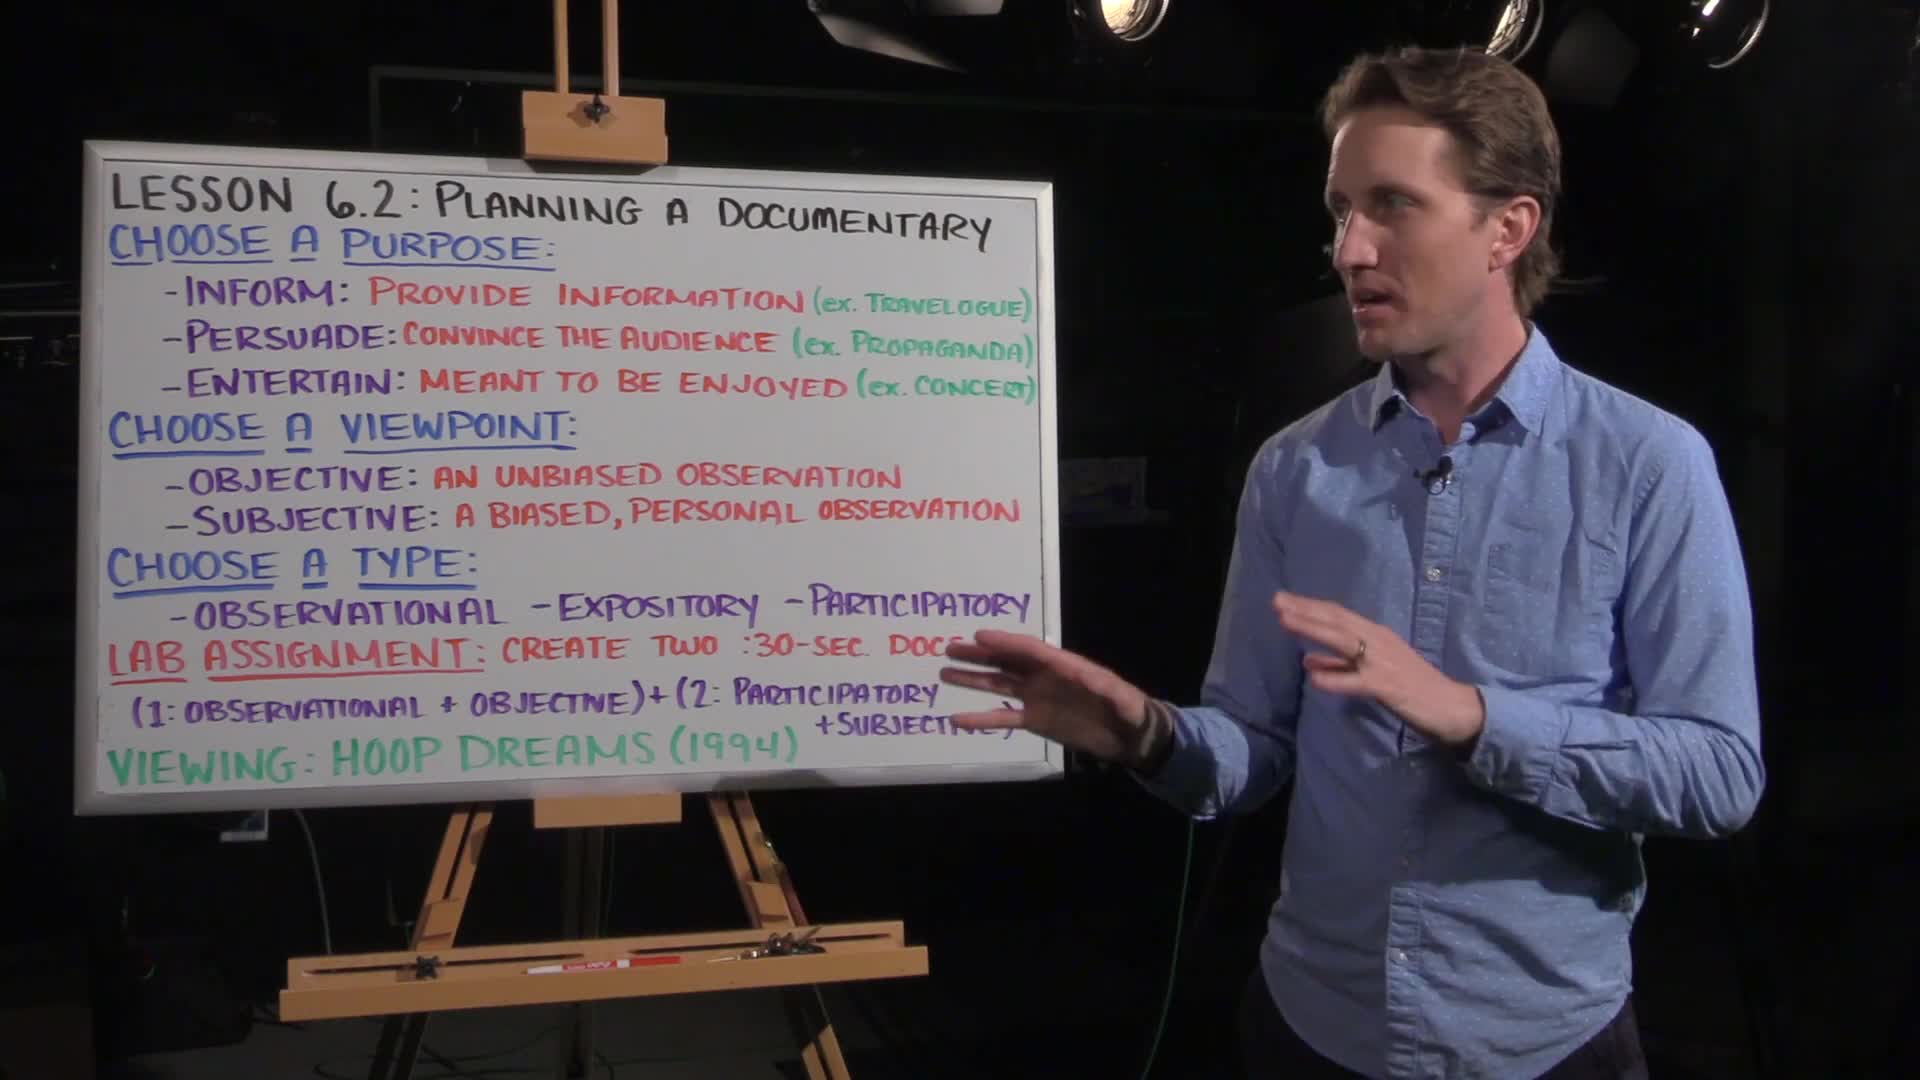 LESSON 6.2: PLANNING A DOCUMENTARY
CHOOSE A PURPOSE:
-INFORM: PROVIDE INFORMATION (ex. TRAVELOGUE)
-PERSUADE: CONVINCE THE AUDIENCE (ex. PROPAGANDA)
-ENTERTAIN: MEANT TO BE ENJOYED (ex. CONCERT)
CHOOSE A VIEWPOINT:
-OBJECTIVE: AN UNBIASED OBSERVATION
-SUBJECTIVE: A BIASED, PERSONAL OBSERVATION
CHOOSE A TYPE:
-OBSERVATIONAL -EXPOSITORY -PARTICIPATORY
LAB ASSIGNMENT: CREATE TWO :30-SEC. DOCS
(1: OBSERVATIONAL + OBJECTIVE) + (2: PARTICIPATORY
+ SUBJECTIVE)
VIEWING: HOOP DREAMS (1994)